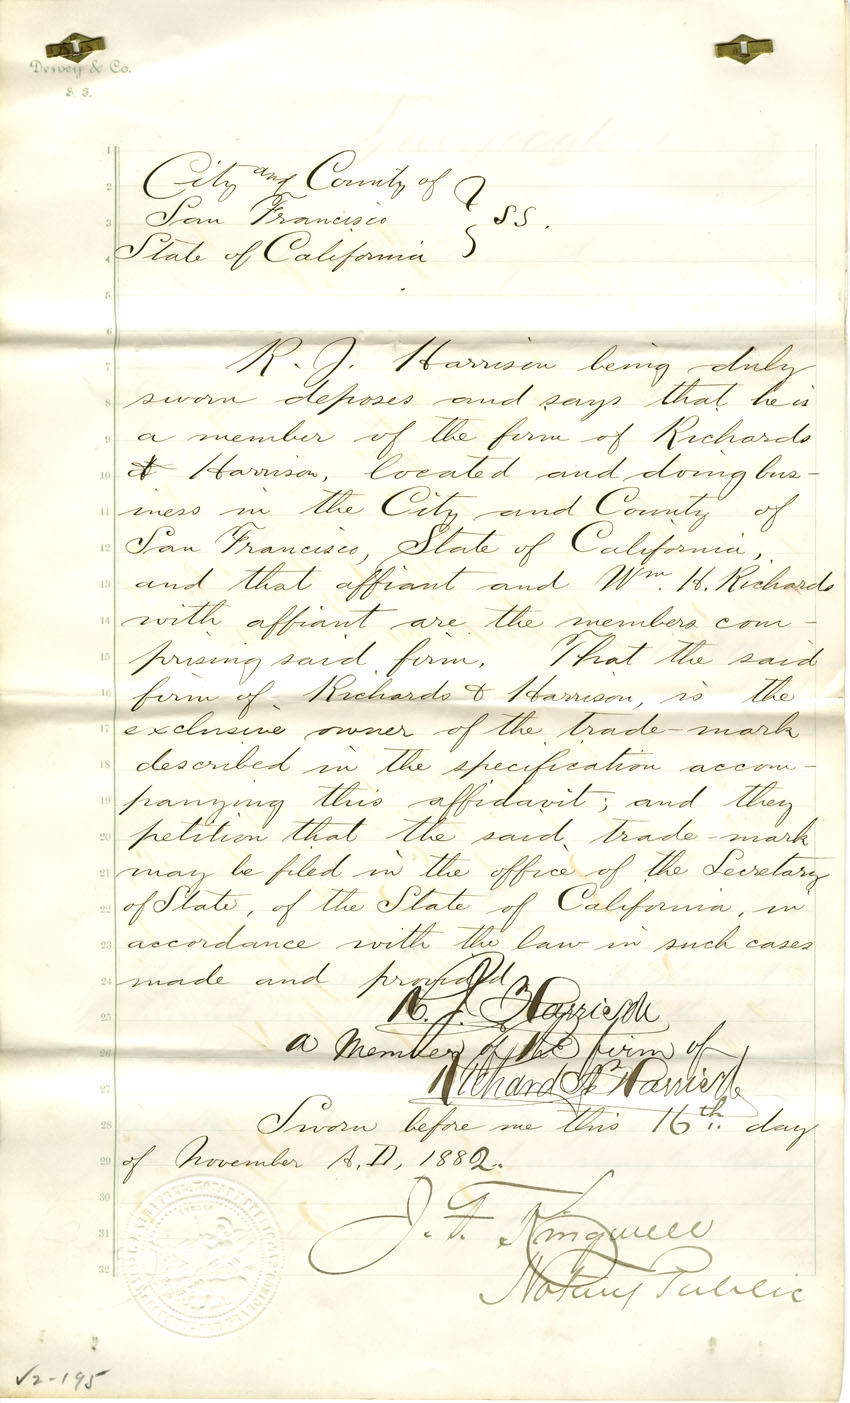 Dewey & Co.
S. F.
1
City and County of
2
San Francisco } ss.
3
State of California
4
5
6
7 R. J. Harrison being duly
8 sworn deposes and says that he is
9 a member of the firm of Richards
10 & Harrison, located and doing bus-
11 iness in the City and County of
12 San Francisco, State of California,
13 and that affiant and Wm. H. Richards
14 with affiant are the members com-
15 prising said firm. That the said
16 firm of Richards & Harrison, is the
17 exclusive owner of the trade-mark
18 described in the specification accom-
19 panying this affidavit; and they
20 petition that the said trade-mark
21 may be filed in the office of the Secretary
22 of State, of the State of California, in
23 accordance with the law in such cases
24 made and provided
25 R. J. Harrison
26 a member of the firm of
27 Richards & Harrison
28 Sworn before me this 16th. day
29 of November A.D. 1882.
30
31 J. F. Kingwell
32 Notary Public
√2-195